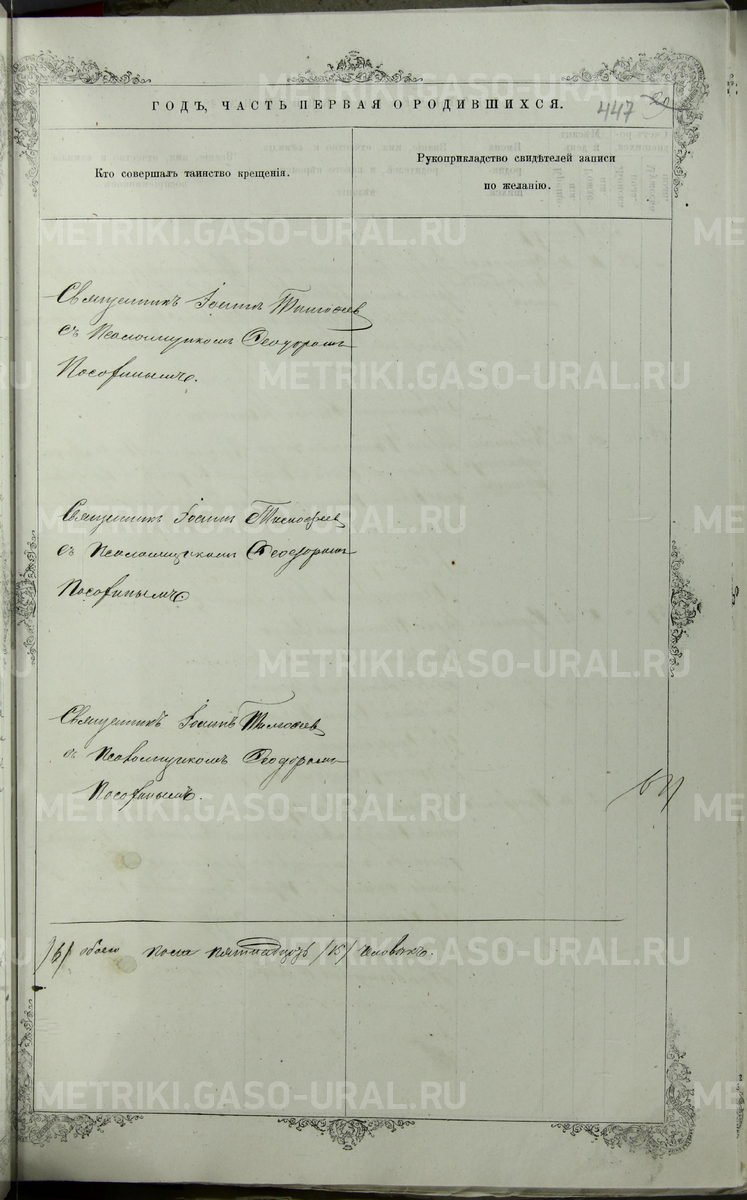 ГОДЪ, ЧАСТЬ ПЕРВАЯ О РОДИВШИХСЯ.
447
Кто совершалъ таинство крещенія.
Рукоприкладство свидѣтелей записи
по желанію.
Священникъ Іоаннъ Тимофеев
съ Псаломщикомъ Ѳеодоромъ
Священникъ Іоаннъ Тимофеев
съ Псаломщикомъ Ѳеодоромъ
Священникъ Іоаннъ Тимофеев
съ Псаломщикомъ Ѳеодоромъ
обоего пола пятнадцать /15/ человѣкъ.
METRIKI.GASO-URAL.RU